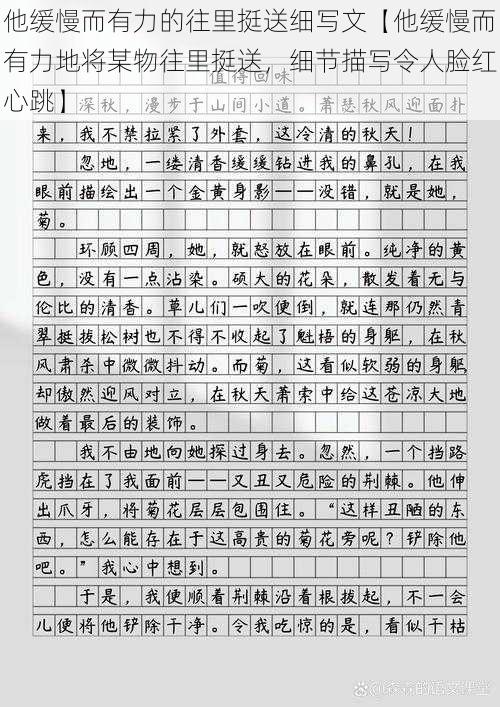 他缓慢而有力的往里挺送细写文【他缓慢而
有力地将某物往里挺送，细节描写令人脸红
心跳】
值得回味
深秋，漫步于山间小道。萧瑟秋风迎面扑
来，我不禁拉紧了外套，这冷清的秋天！
忽地，一缕清香缓缓钻进我的鼻孔，在我
眼前描绘出一个金黄身影——没错，就是她，
菊。
环顾四周，她，就怒放在眼前。纯净的黄
色，没有一点沾染。硕大的花朵，散发着无与
伦比的清香。草儿们一吹便倒，就连那仍然青
翠挺拔松树也不得不收起了魁梧的身躯，在秋
风肃杀中微微抖动。而菊，这看似软弱的身躯，
却傲然迎风对立，在秋天萧索中给这苍凉大地
做着最后的装饰。
我不由地向她探过身去。忽然，一个挡路
虎挡在了我面前——又丑又危险的荆棘。他伸
出爪牙，将菊花层层包围住。“这样丑陋的东
西，怎么能存在于这高贵的菊花旁呢？铲除他
吧。”我心中想到。
于是，我便顺着荆棘沿着根拔起，不一会
儿便将他铲除干净。令我吃惊的是，看似干枯